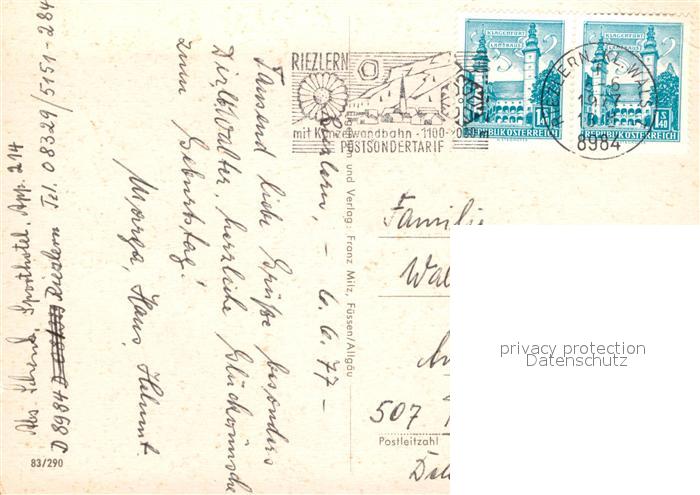 Riezlern, - 6.6.77 -
Tausend liebe Grüße besonders
Dir lb. Walter, herzliche Glückwünsche
zum Geburtstag!
Marga, Hans, Helmut.
Abs. Sporthotel. App. 214
D 8984 Riezlern Tel. 08329/5151-284
83/290
und Verlag: Franz Milz, Füssen/Allgäu
RIEZLERN
mit Kanzelwandbahn - 1100-2000 m
POSTSONDERTARIF
KLAGENFURT
LANDHAUS
REPUBLIK ÖSTERREICH
KLAGENFURT
LANDHAUS
REPUBLIK ÖSTERREICH
S 1.40
8984
Familie
Wal
507
Postleitzahl
privacy protection
Datenschutz